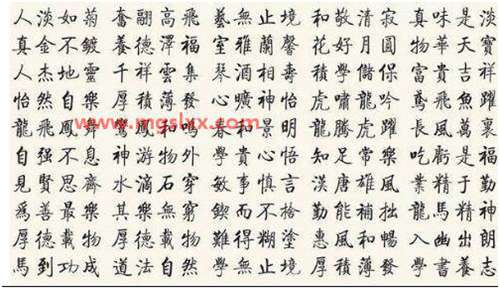 人淡如菊 奮翮高飛 藝無止境 和敬清寂 真味是淡
真金不鍍 養德澤福 室雅蘭馨 花好月圓 物華天寶
人杰地靈 千祥雲集 琴酒相壽 積學儲保 富貴吉祥
怡然自樂 厚積薄發 心曠神怡 虎嘯龍吟 鳶飛魚躍
龍飛鳳舞 鸞鳳和鳴 和景明 龍騰虎躍 長風萬裏
自强不息 神游物外 學貴心悟 知足常樂 吃虧是福
見賢思齊 水滴石穿 敏事慎言 漢唐雄風 業精于勤
爲善最樂 其樂無窮 鍥而不捨 勤能補拙 龍馬精神
厚德載物 厚德載物 難得糊塗 惠風和暢 入幽出朗
馬到功成 道法自然 學無止境 厚積薄發 學書養志
www.mgslxx.com